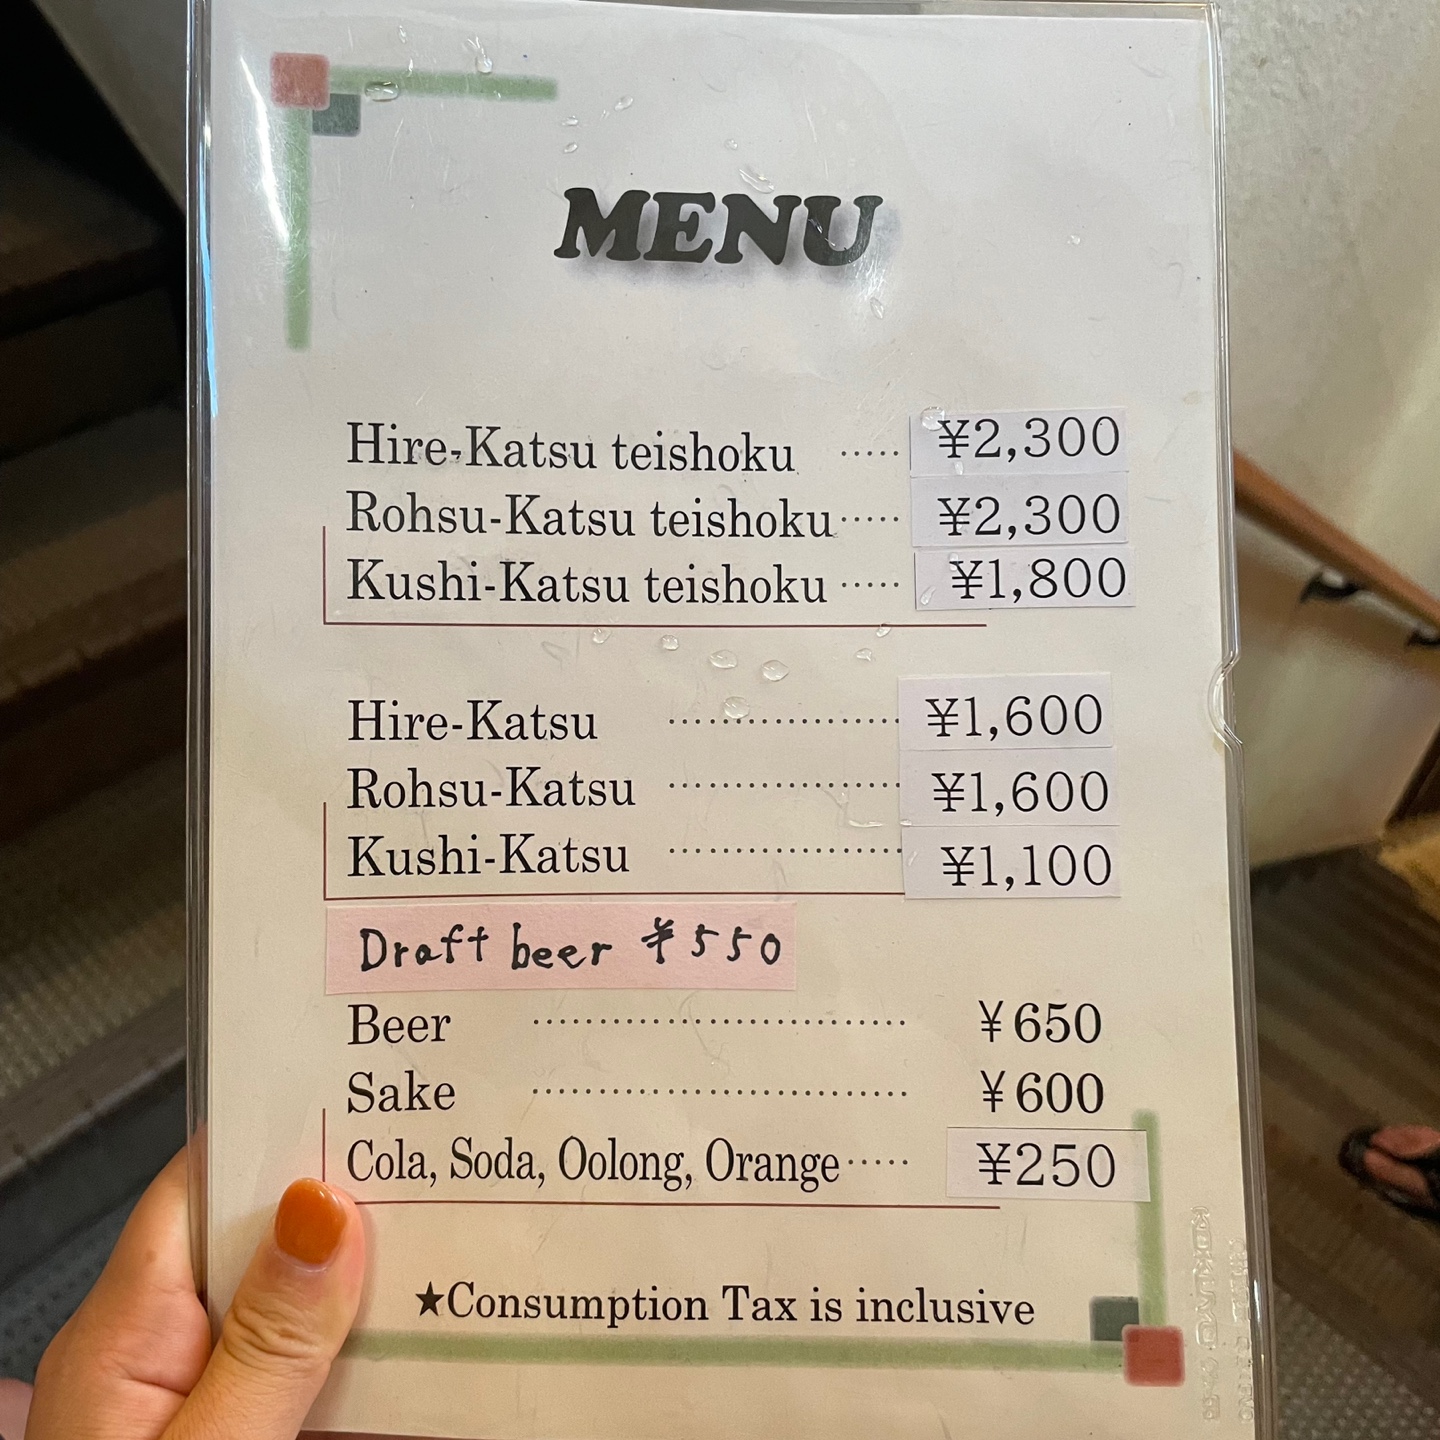 MENU
Hire-Katsu teishoku ····· ¥2,300
Rohsu-Katsu teishoku ····· ¥2,300
Kushi-Katsu teishoku ····· ¥1,800
Hire-Katsu ····················· ¥1,600
Rohsu-Katsu ····················· ¥1,600
Kushi-Katsu ····················· ¥1,100
Draft beer ¥550
Beer ································· ¥650
Sake ································· ¥600
Cola, Soda, Oolong, Orange ····· ¥250
★Consumption Tax is inclusive
KOKUYO